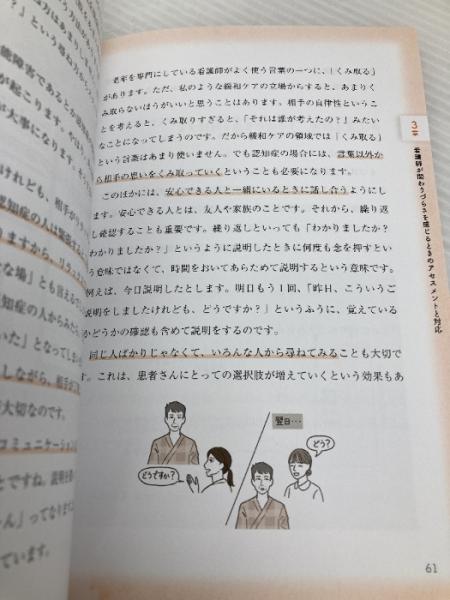 老年を専門にしている看護師がよく使う言葉の一つに、「くみ取る」
があります。ただ、私のような緩和ケアの立場からすると、あまりく
み取らないほうがいいと思うことはあります。相手の自律性というこ
とを考えると、くみ取りすぎると、「それは誰が考えたの？」みたい
なことになってしまうのです。だから緩和ケアの領域では「くみ取る」
という言葉はあまり使いません。でも認知症の場合には、言葉以外か
ら相手の思いをくみ取っていくということも必要になります。
このほかには、安心できる人と一緒にいるときに話し合うようにし
ます。安心できる人とは、友人や家族のことです。それから、繰り返
し確認することも重要です。繰り返しといっても「わかりましたか？
わかりましたか？」というように説明したときに何度も念を押すとい
う意味ではなくて、時間をおいてあらためて説明するという意味です。
例えば、今日説明したとします。明日もう1回、「昨日、こういうご
説明をしましたけれども、どうですか？」というふうに、覚えている
かどうかの確認も含めて説明をするのです。
同じ人ばかりじゃなくて、いろんな人から尋ねてみることも大切で
す。これは、患者さんにとっての選択肢が増えていくという効果もあ
どうですか？
翌日…
どう？
3章
看護師が関わりづらさを感じるときのアセスメントと対応
61
能障害であるとの認
が起こります。
が大事になります。
けれども、相手が
認知症の人は
りますから、
な場」とも言えて
知症の人からみた
いた」となってしま
しながら、相手が
大切なのです。
コミュニケーション
とですね。説明を
ん」ってなりま
ています。